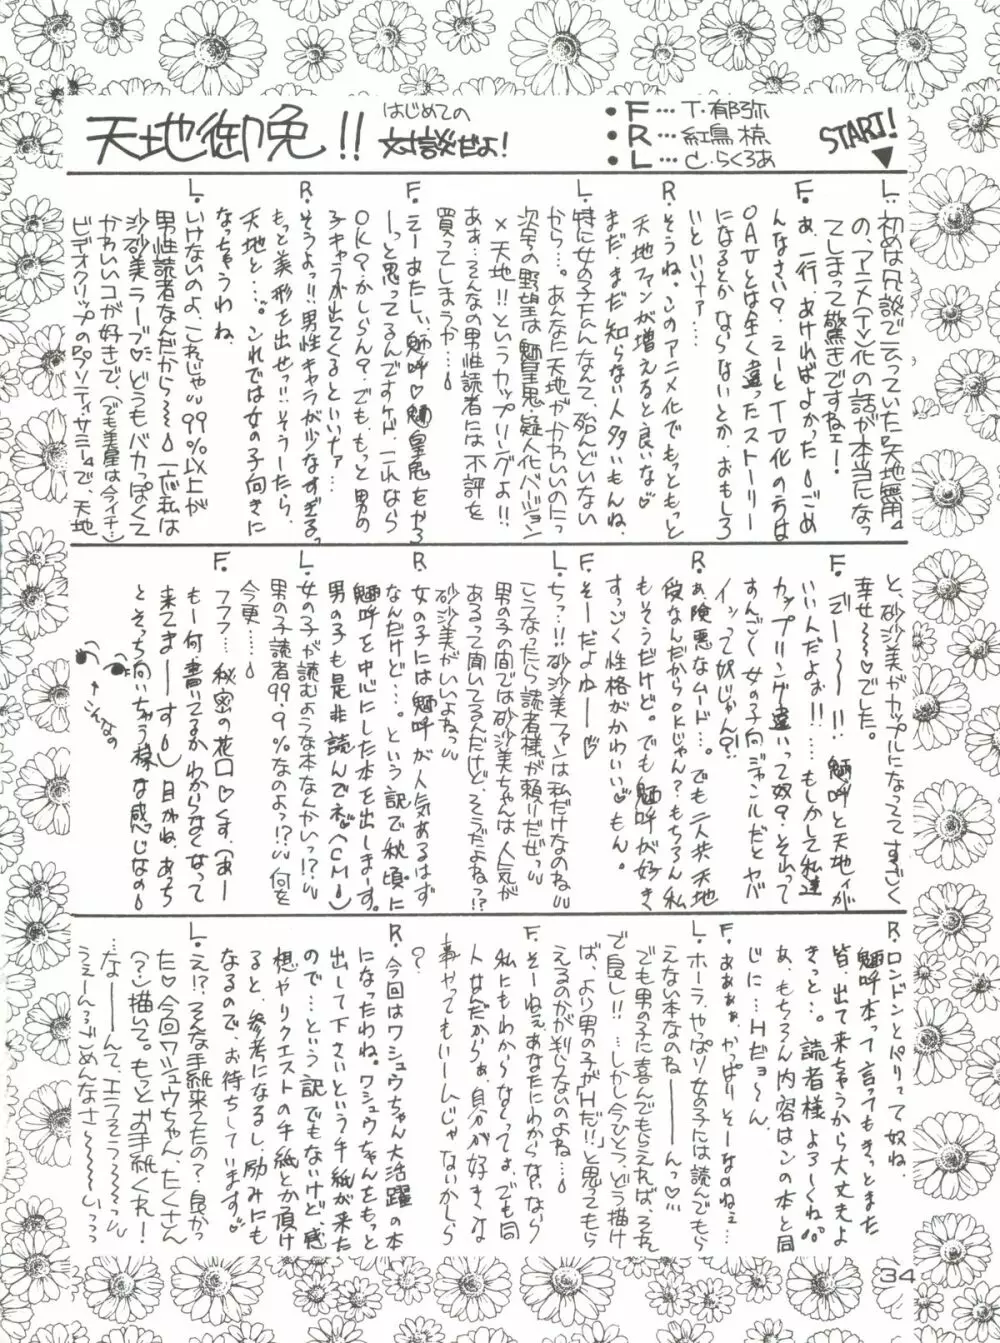 天地御免!!
はじめての
対談せよ!
・F… T・郁弥
・R… 紅鳥 椋
・L… C.らくろあ
START!
L.初めは冗談で云っていた『天地無用』
の(アニメ(TV)化の話が本当になっ
てしまって驚きですねェ!
F.あ、一行、あければよかった。ごめ
んなさい?えーとTV化の方は
OAVとは全く違ったストーリー
になるとかならないとか、おもしろ
いといいナァ…
R.そうね。このアニメ化でもっともっと
天地ファンが増えると良いな♡
まだ、まだ知らない人多いもんね、
L.特に女の子Fanなんて、殆んどいない
から…。あんなに天地がかわいいのにっ
次号の野望は魎皇鬼・擬人化バージョン
×天地!!というカップリングよ!!
あぁ…そんなの男性読者には不評を
買ってしまうか…
F.えーあたし、魎呼♡魎皇鬼をやろ
ーっと思ってるんですケド、これなら
OK?かしらん?でも、もっと男の
子キャラが出てくるといいナァ
R.そうよっ!!男性キャラが少なすぎるっ
もっと美形を出せっ!!そうしたら、
天地と…。これでは女の子向きに
なっちゃうわね
L.いけないのよ、これじゃ"99%以上が
男性読者なんだから〜〜 一応私は
沙沙美ラーブ♡どうもバカっぽくて
かわいいコが好きで、(でも美星は今イチ…)
ビデオクリップの『プリティ・サミー』で、天地
と、砂沙美がカップルになっててすごく
幸せ〜〜♡でした。
F.『でー〜〜!!魎呼と天地ィが
いいんだよぉ!!……もしかして私達
カップリング違いって奴?そォって
すんごく女の子向ジャンルだとヤバ
イッって奴じゃん?!
R.あ、険悪なムード…。でも二人共天地
受なんだからOKじゃん?もちろん私
もそうだけど。でも魎呼が好き
すっごく性格がかわいい♡もん。
F.そーだよゆー♡
L.ちっ…!!砂沙美ファンは私だけなのね"
こうなったら読者様が頼りだぜっ"
男の子の間では砂沙美ちゃんは人気が
あるって聞いてるんだけど、そうだよね?!
砂沙美がいいよねっ"
R.女の子には魎呼が人気あるはず
なんだけど…。という訳で秋頃に
魎呼を中心にした本を出しまーす。
男の子も是非読んでネ♡(CM)
L.女の子が読むような本なんかいっ!?"
男の子読者99.9%なのよっ!?"何を
今更…
F.フフフ…秘密の花□♡くす、(あー
もー何書いてるかわからなくなって
来てまーーす) 目がね、あっち
とそっち向いちゃう様な感じなの
↑こんなの
R.ロンドンとパリって奴ね
魎呼本って言ってもきっとまた
皆、出て来ちゃうから大丈夫よ
きっと…。読者様よろしくね。
あ、もちろん内容はこの本と同
じに…Hだョーん
F.あああぁ、かっぱりそーなのねェ…
L.ホーラ、やっぱり女の子には読んでもら
えない本なのね————んっ♡
でも男の子に喜んでもらえれば、それ
で良し!!…しかし今ひとつ、どう描け
ば、より男の子が『Hだ!!』と思ってもら
えるのかが判らないのよね…
F.そーねぇあなたにわからない、なら
私にもわからなくってよ、でも同
人なんだからぁ、自分が好きな
事やってもいーんじゃないかしら
?
R.今回はワシュウちゃん大活躍の本
になったわね。ワシュウちゃんをもっと
出して下さいという手紙が来た
ので…という訳でもないけど感
想やリクエストの手紙とか頂け
ると、参考になるし、励みにも
なるので、お待ちしています♡
L.え!?そんな手紙来てたの?良かっ
た♡今回ワシュウちゃん、たくさん
(?)描いて。もっとお手紙くれ!
…なーーんて、エラそう〜〜"
うえーん、ごめんなさ〜〜〜いっっ
34